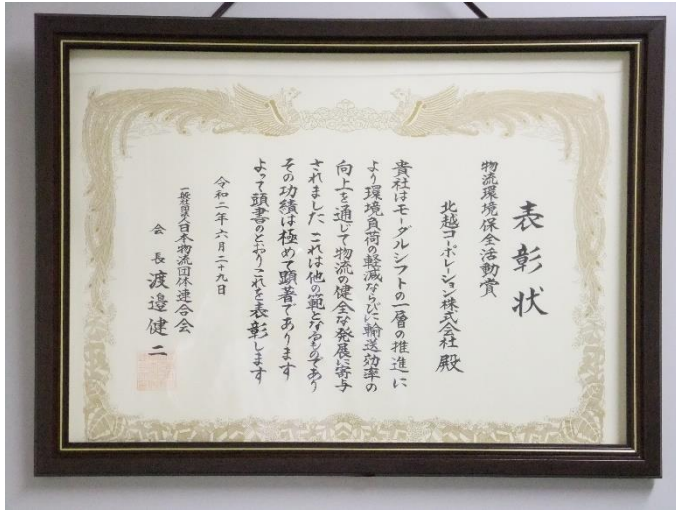 表彰状
物流環境保全活動賞
北越コーポレーション株式会社 殿
貴社はモーダルシフトの一層の推進に
より環境負荷の軽減ならびに輸送効率の
向上を通じて物流の健全な発展に寄与
されました これは他の範となるものであり
その功績は極めて顕著であります
よって頭書のとおりこれを表彰します
令和二年六月二十九日
一般社団法人日本物流団体連合会
会長 渡邉健二